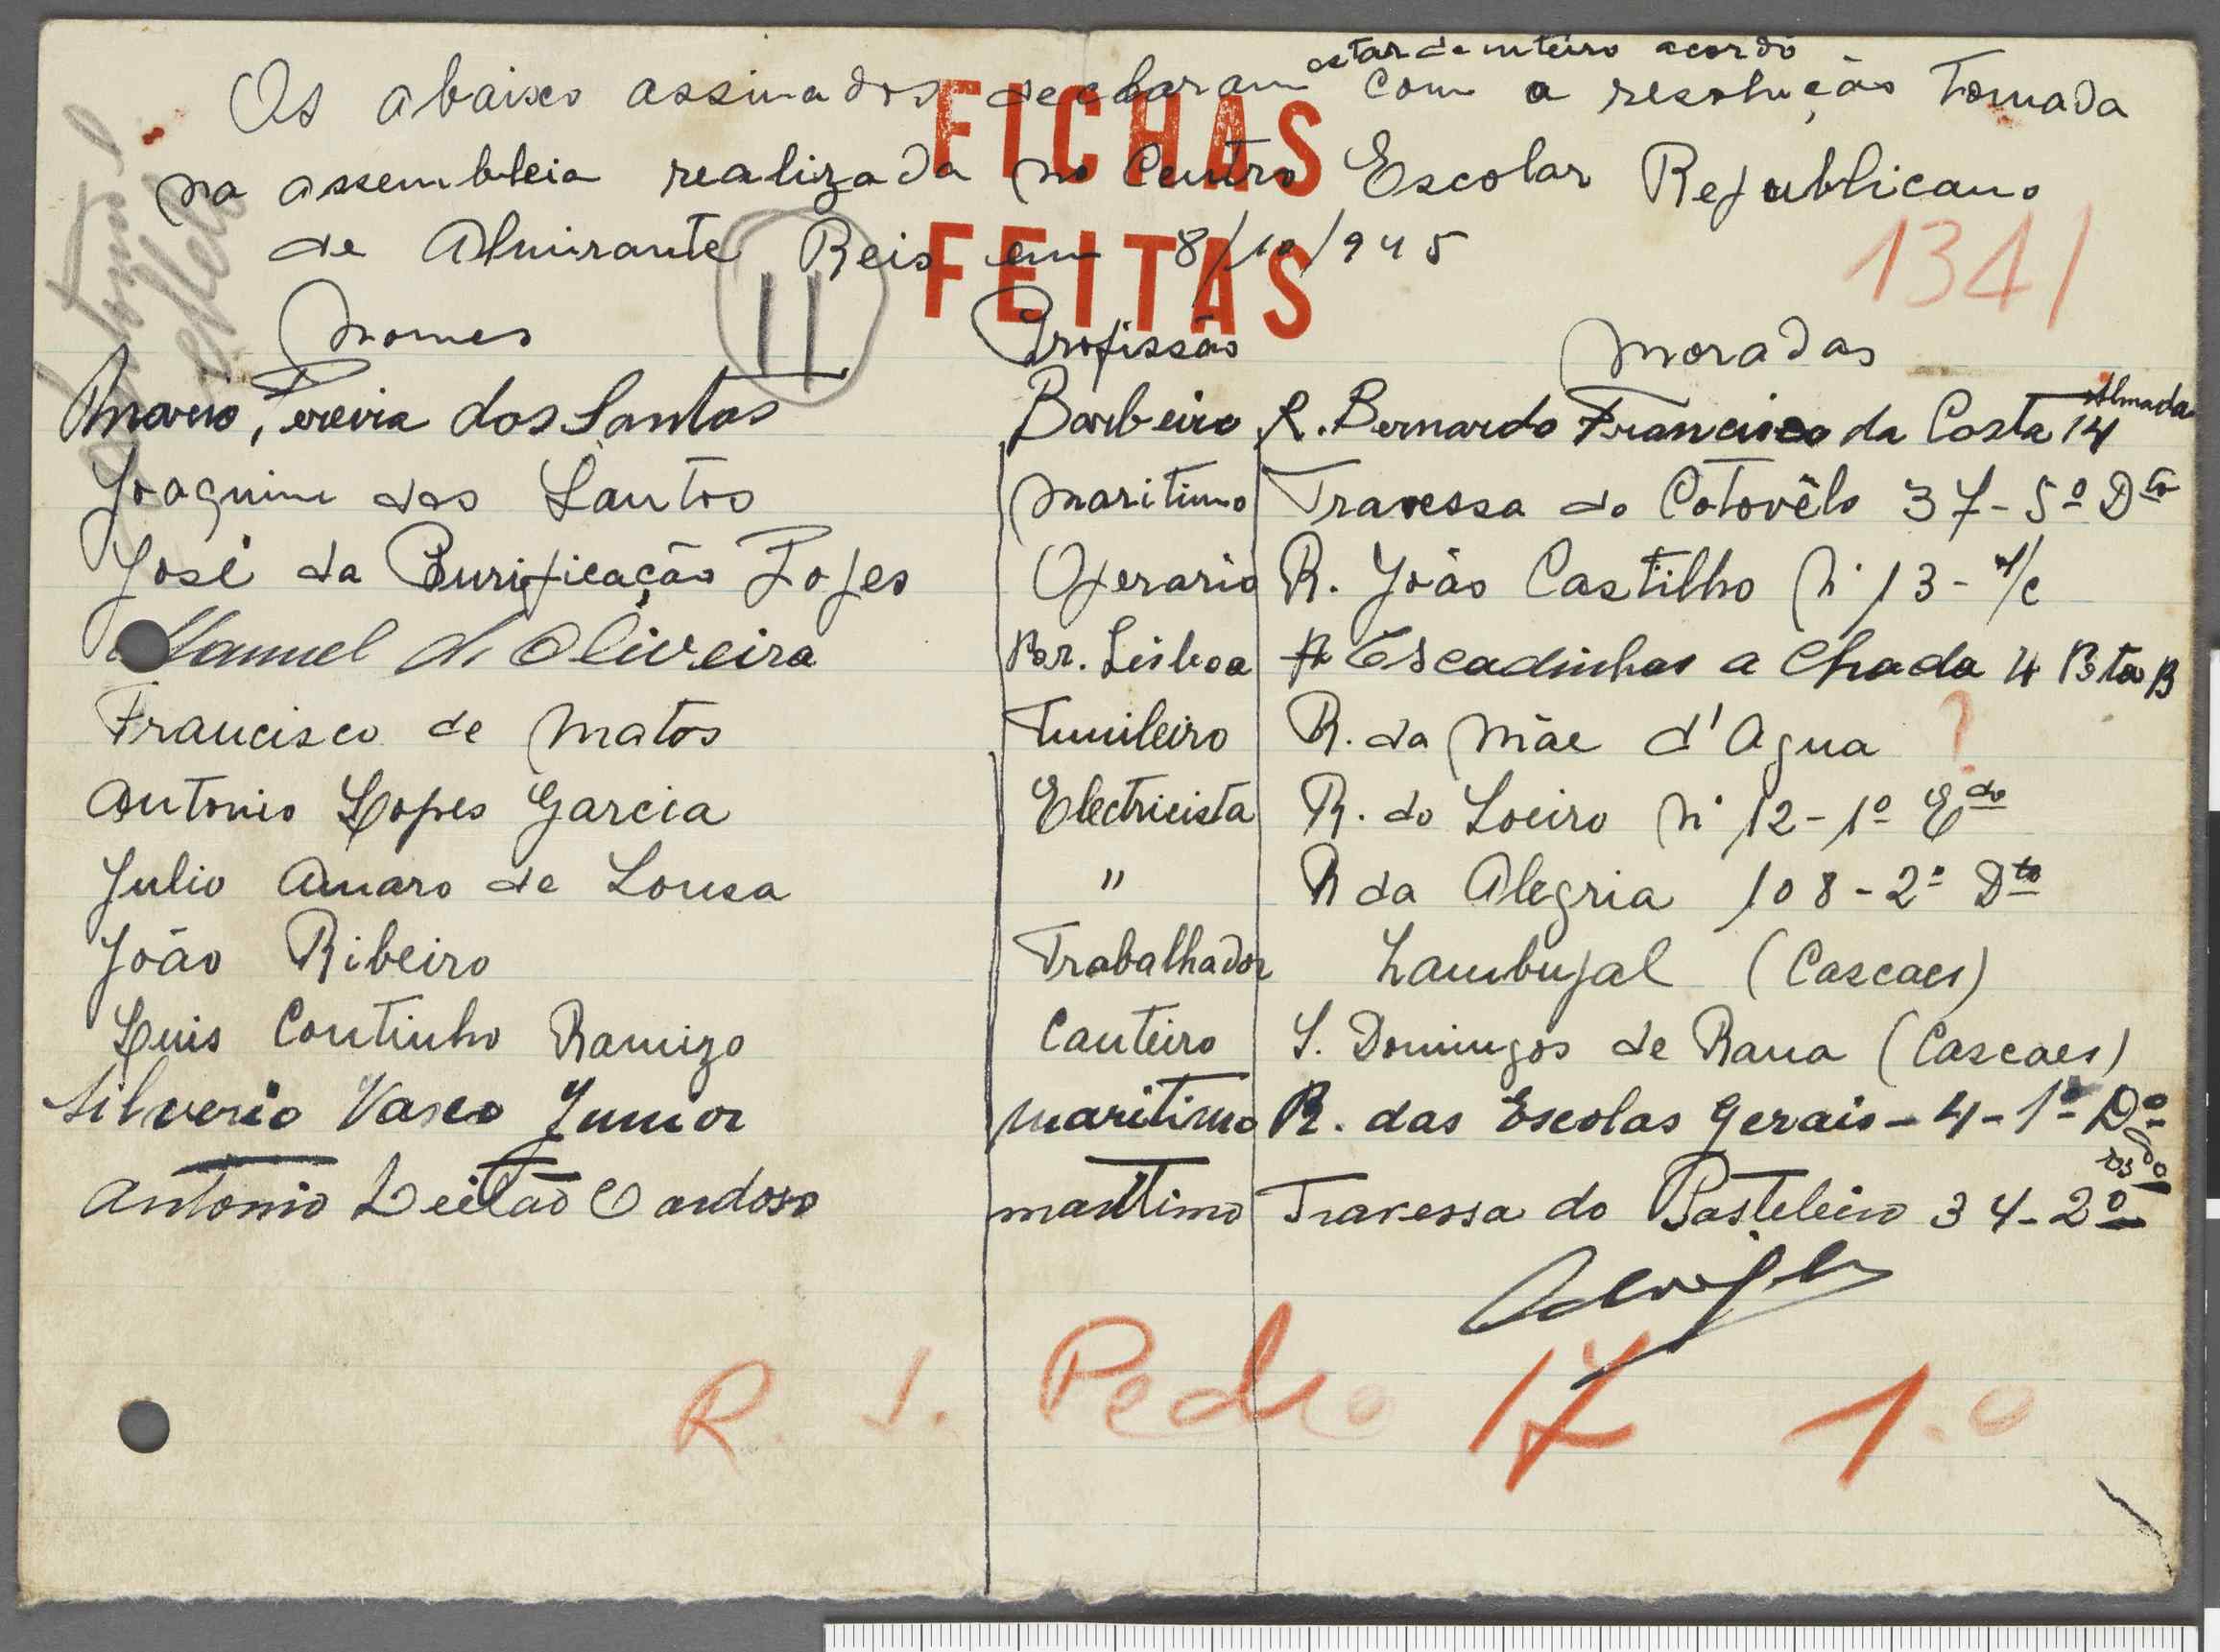 estar de inteiro acordo
Os abaixo assinados declaram com a resolução tomada
na assembleia realizada no Centro Escolar Republicano
de Almirante Reis em 8/10/945
FICHAS
FEITAS
11
1341
Nomes Profissão Moradas
Mario Pereira dos Santos Barbeiro R. Bernardo Francisco da Costa 14 Almada
Joaquim dos Santos Maritimo Travessa do Cotovêlo 37-5º Dto
José da Purificação Lopes Operario R. João Castilho Nº 13-r/c
Manuel de Oliveira Por. Lisboa Escadinhas a Chada 4 Pta B
Francisco de Matos Funileiro R. da Mãe d'Agua ?
Antonio Lopes Garcia Electricista R. do Loeiro Nº 12-1º Edo
Julio Amaro de Sousa " R da Alegria 108-2º Dto
João Ribeiro Trabalhador Zambujal (Cascaes)
Luis Coutinho Ramizo Canteiro S. Domingos de Rana (Cascaes)
Silverio Vasco Junior maritimo R. das Escolas Gerais-4-1º Dº
Antonio Leitão Cardoso maritimo Travessa do Pasteleiro 34-2º
R. S. Pedro 17 1.º